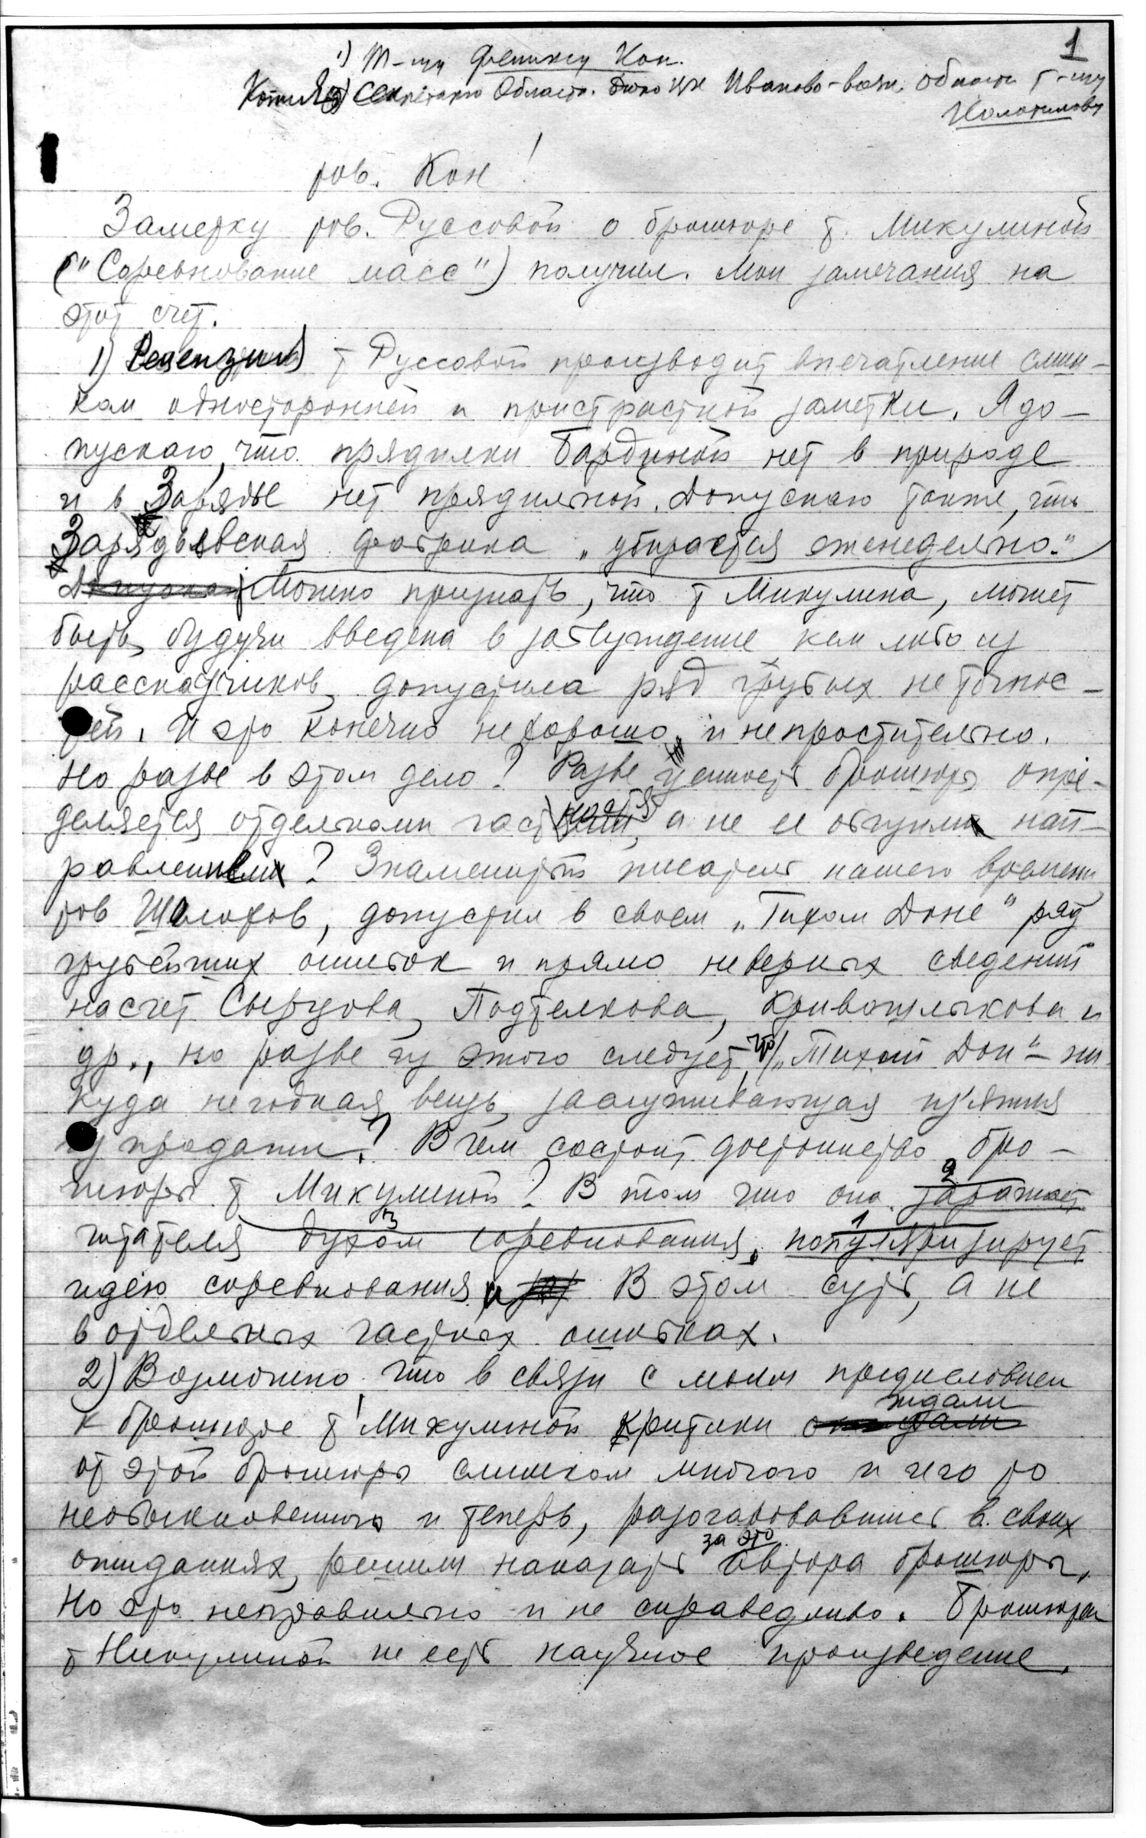 1
1) Т-щу Феликсу Кон.
Копия 2) Секретарю Областн. бюро ЦК Иваново-возн. области Т-щу
Колотилову
тов. Кон!
Заметку тов. Руссовой о брошюре т. Микулиной
("Соревнование масс") получил. Мои замечания на
этот счет.
1) Рецензия т Руссовой производит впечатление слиш-
ком односторонней и пристрастной заметки. Я до-
пускаю, что прядилки Бардиной нет в природе
и в Зарядье нет прядильной. Допускаю также, что
Зарядьевская фабрика „убирается еженедельно."
Можно признать, что т Микулина, может
быть, будучи введена в заблуждение кем либо из
рассказчиков, допустила ряд грубых неточнос-
тей. И это конечно нехорошо и непростительно.
Но разве в этом дело? Разве ценность брошюры опре-
деляется отдельными частностями, а не ее общим нап-
равлением? Знаменитый писатель нашего времени
тов Шолохов, допустил в своем „Тихом Доне" ряд
грубейших ошибок и прямо неверных сведений
насчет Сырцова, Подтелкова, Кривошлыкова и
др., но разве из этого следует, что „Тихий Дон" – ни
куда негодная вещь, заслуживающая изъятия
из продажи? В чем состоит достоинство бро-
шюры т Микулиной? В том что она 2 заражает
читателя 3 духом соревнования, 1 популяризирует
идею соревнования и В этом суть, а не
в отдельных частных ошибках.
2) Возможно что в связи с моим предисловием
к брошюре т Микулиной критики ждали
от этой брошюры слишком многого и чего то
необыкновенного и теперь, разочаровавшись в своих
ожиданиях, решили наказать за это автора брошюры.
Но это неправильно и не справедливо. Брошюра
т Микулиной не есть научное произведение.